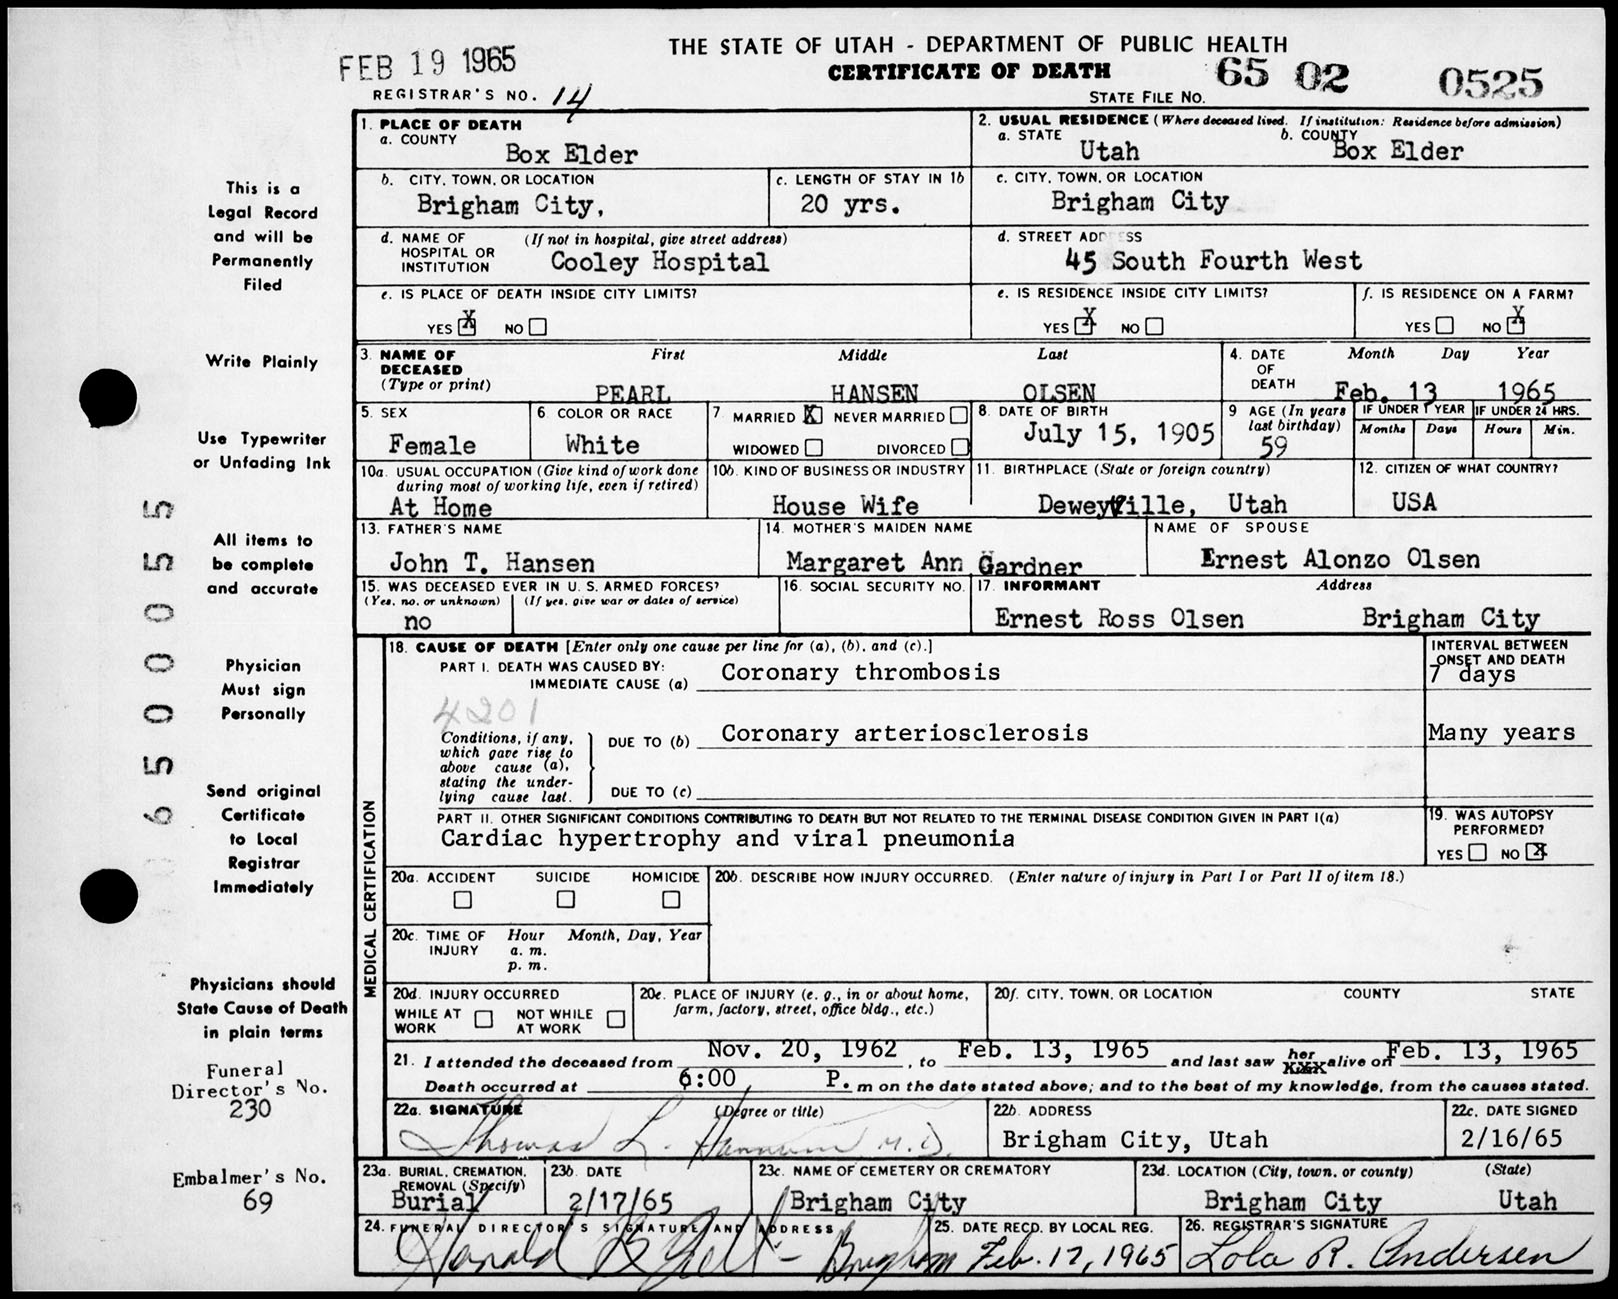 THE STATE OF UTAH - DEPARTMENT OF PUBLIC HEALTH
FEB 19 1965
CERTIFICATE OF DEATH
65 02 0525
REGISTRAR'S NO. 14
STATE FILE NO.
This is a
Legal Record
and will be
Permanently
Filed
Write Plainly
Use Typewriter
or Unfading Ink
All items to
be complete
and accurate
Physician
Must sign
Personally
Send original
Certificate
to Local
Registrar
Immediately
Physicians should
State Cause of Death
in plain terms
Funeral
Director's No.
230
Embalmer's No.
69
65000055
1. PLACE OF DEATH
a. COUNTY
Box Elder
2. USUAL RESIDENCE (Where deceased lived. If institution: Residence before admission)
a. STATE
Utah
b. COUNTY
Box Elder
b. CITY, TOWN, OR LOCATION
Brigham City,
c. LENGTH OF STAY IN 1b
20 yrs.
c. CITY, TOWN, OR LOCATION
Brigham City
d. NAME OF HOSPITAL OR INSTITUTION
(If not in hospital, give street address)
Cooley Hospital
d. STREET ADDRESS
45 South Fourth West
e. IS PLACE OF DEATH INSIDE CITY LIMITS?
YES X NO
e. IS RESIDENCE INSIDE CITY LIMITS?
YES X NO
f. IS RESIDENCE ON A FARM?
YES NO X
3. NAME OF DECEASED
(Type or print)
First Middle Last
PEARL HANSEN OLSEN
4. DATE OF DEATH
Month Day Year
Feb. 13 1965
5. SEX
Female
6. COLOR OR RACE
White
7. MARRIED X NEVER MARRIED
WIDOWED DIVORCED
8. DATE OF BIRTH
July 15, 1905
9 AGE (In years last birthday)
59
IF UNDER 1 YEAR
Months Days
IF UNDER 24 HRS.
Hours Min.
10a. USUAL OCCUPATION (Give kind of work done during most of working life, even if retired)
At Home
10b. KIND OF BUSINESS OR INDUSTRY
House Wife
11. BIRTHPLACE (State or foreign country)
Deweyville, Utah
12. CITIZEN OF WHAT COUNTRY?
USA
13. FATHER'S NAME
John T. Hansen
14. MOTHER'S MAIDEN NAME
Margaret Ann Gardner
NAME OF SPOUSE
Ernest Alonzo Olsen
15. WAS DECEASED EVER IN U. S. ARMED FORCES?
(Yes, no, or unknown) (If yes, give war or dates of service)
no
16. SOCIAL SECURITY NO.
17. INFORMANT Address
Ernest Ross Olsen Brigham City
MEDICAL CERTIFICATION
18. CAUSE OF DEATH [Enter only one cause per line for (a), (b), and (c).]
PART I. DEATH WAS CAUSED BY:
IMMEDIATE CAUSE (a) Coronary thrombosis
INTERVAL BETWEEN ONSET AND DEATH
7 days
4201
Conditions, if any,
which gave rise to
above cause (a),
stating the under-
lying cause last.
DUE TO (b) Coronary arteriosclerosis
Many years
DUE TO (c)
PART II. OTHER SIGNIFICANT CONDITIONS CONTRIBUTING TO DEATH BUT NOT RELATED TO THE TERMINAL DISEASE CONDITION GIVEN IN PART I(a)
Cardiac hypertrophy and viral pneumonia
19. WAS AUTOPSY PERFORMED?
YES NO X
20a. ACCIDENT SUICIDE HOMICIDE
20b. DESCRIBE HOW INJURY OCCURRED. (Enter nature of injury in Part I or Part II of item 18.)
20c. TIME OF INJURY
Hour Month, Day, Year
a. m.
p. m.
20d. INJURY OCCURRED
WHILE AT WORK NOT WHILE AT WORK
20e. PLACE OF INJURY (e. g., in or about home, farm, factory, street, office bldg., etc.)
20f. CITY, TOWN, OR LOCATION COUNTY STATE
21. I attended the deceased from Nov. 20, 1962, to Feb. 13, 1965 and last saw her XXX alive on Feb. 13, 1965
Death occurred at 6:00 P. m on the date stated above; and to the best of my knowledge, from the causes stated.
22a. SIGNATURE (Degree or title)
Thomas L. M.D.
22b. ADDRESS
Brigham City, Utah
22c. DATE SIGNED
2/16/65
23a. BURIAL, CREMATION, REMOVAL (Specify)
Burial
23b. DATE
2/17/65
23c. NAME OF CEMETERY OR CREMATORY
Brigham City
23d. LOCATION (City, town, or county) (State)
Brigham City Utah
24. FUNERAL DIRECTOR'S SIGNATURE AND ADDRESS
Harold B. Brigham
25. DATE RECD. BY LOCAL REG.
Feb. 17, 1965
26. REGISTRAR'S SIGNATURE
Lola R. Andersen